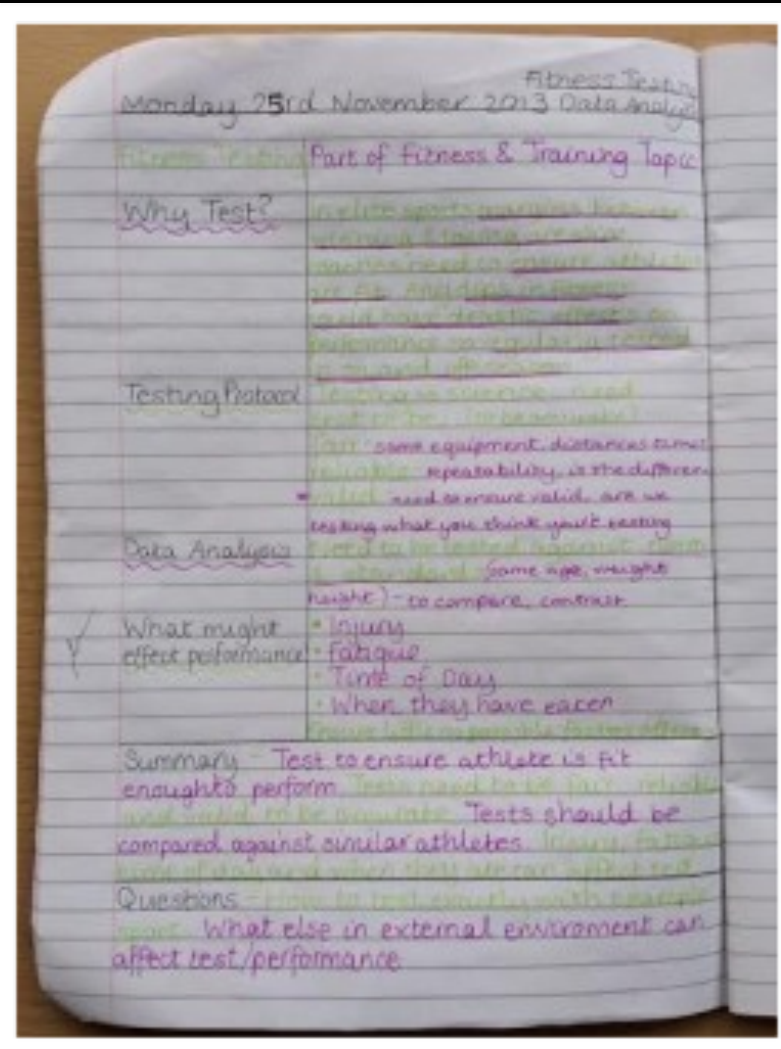 Fitness Testing
Monday 25rd November 2013 Data Analysis
Fitness Testing Part of Fitness & Training Topic
Why Test? In elite sports margins between
winning & losing are slim
coaches need to ensure athletes
are fit. Any dips in fitness
could have drastic effects on
performance so regularly tested
in and off season
Testing Protocol Testing is science need
test to be (to be accurate)
Fair same equipment, distances times
reliable repeatability, is the different
valid need to ensure valid, are we
testing what you think you't testing
Data Analysis Need to be tested against norm
standard (same age, weight
height) - to compare, contrast
What might • Injury
effect performance • Fatigue
• Time of Day
• When they have eaten
Ensure little as possible factors
Summary - Test to ensure athlete is fit
enoughto perform. Tests need to be fair, reliable
and valid to be accurate. Tests should be
compared against similar athletes. Injury, fatigue
time of day and when they ate can affect test
Questions - How to test exactly with example
sport. What else in external enviroment can
affect test/performance